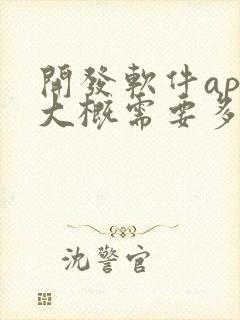 開發軟件ap
大概需要多
沈警官